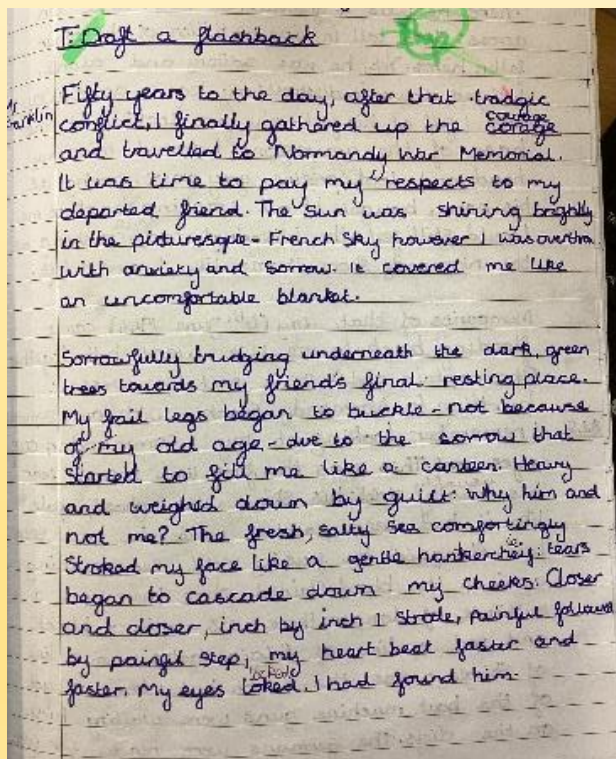 T: Draft a flashback
Mr
Franklin
Fifty years to the day, after that tradgic
courage
conflict, I finally gathered up the corage
and travelled to Normandy War Memorial.
It was time to pay my respects to my
departed friend. The sun was shining brightly
in the picturesque - French sky however I was
with anxiety and sorrow. It covered me like
an uncomfortable blanket.
Sorrowfully trudging underneath the dark, green
trees towards my friend's final resting place.
My frail legs began to buckle - not because
of my old age - due to the sorrow that
started to fill me like a canteen. Heavy
and weighed down by guilt: Why him and
not me? The fresh, salty sea comfortingly
stroked my face like a gentle hankercheif: tears
began to cascade down my cheeks. Closer
and closer, inch by inch I strode, painful followed
by painful step, my heart beat faster and
faster. My eyes loked, I had found him.